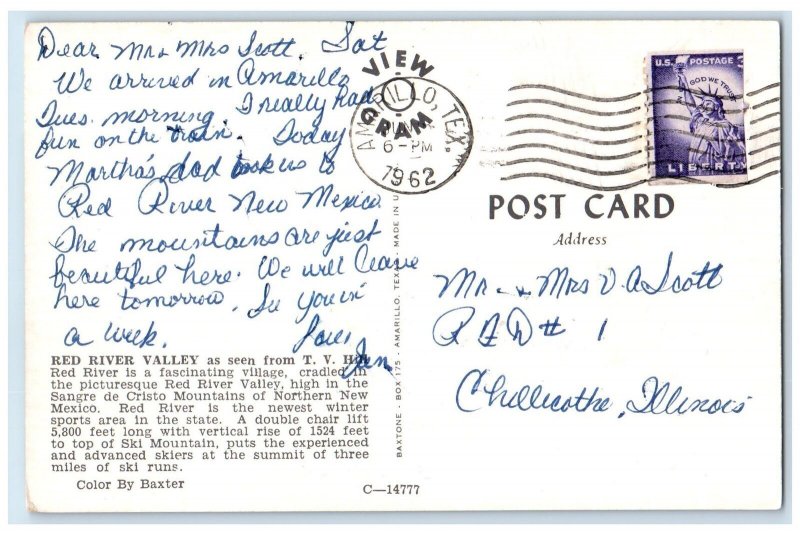 Dear Mr & Mrs Scott, Sat
We arrived in Amarillo
Tues. morning. I really had
fun on the train. Today
Martha's dad took us to
Red River New Mexico.
The mountains are just
beautiful here. We will leave
here tomorrow. See you in
a week. Love,
Jen
RED RIVER VALLEY as seen from T. V. Hill
Red River is a fascinating village, cradled in
the picturesque Red River Valley, high in the
Sangre de Cristo Mountains of Northern New
Mexico. Red River is the newest winter
sports area in the state. A double chair lift
5,800 feet long with vertical rise of 1524 feet
to top of Ski Mountain, puts the experienced
and advanced skiers at the summit of three
miles of ski runs.
Color By Baxter
VIEW
GRAM
AMARILLO, TEX.
6-PM
1962
BAXTONE - BOX 175 - AMARILLO, TEXAS - MADE IN U
C-14777
U.S. POSTAGE
IN GOD WE TRUST
LIBERTY
POST CARD
Address
Mr. & Mrs V. A Scott
R F D # 1
Chillicothe, Illinois